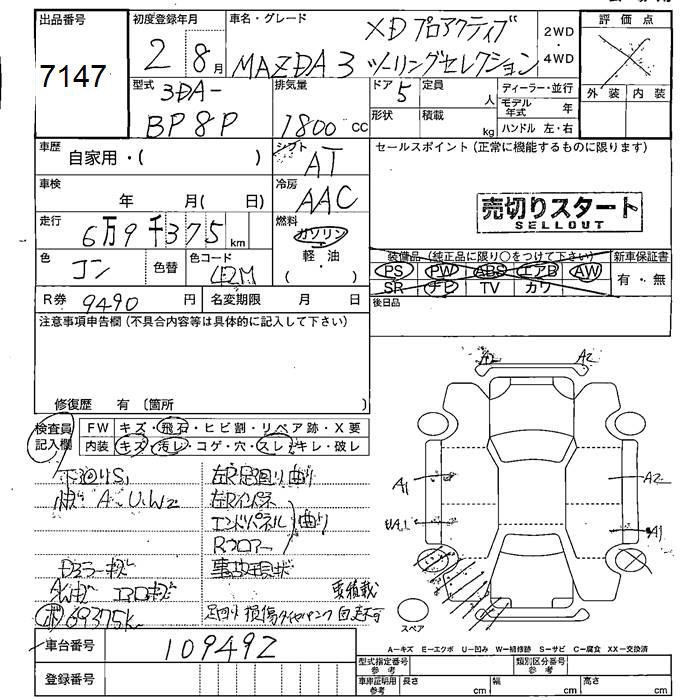 出品番号
7147
初度登録年月
2 8月
車名・グレード
MAZDA3
XD プロアクティブ
ツーリングセレクション
2WD
・
4WD
評価点
外装 内装
型式
3DA-
BP8P
排気量
1800 cc
ドア 5
定員 人
形状
積載 kg
ディーラー・並行
モデル年式 年
ハンドル 左・右
車歴
自家用・( )
シフト
AT
セールスポイント(正常に機能するものに限ります)
車検
年 月( 日)
冷房
AAC
売切りスタート
SELLOUT
走行
6万9千375 km
燃料
ガソリン
軽・油
( )
色
コン
色替
色コード
42M
装備品(純正品に限り○をつけて下さい)
PS PW ABS エアB AW
SR ナビ TV カワ
新車保証書
有・無
R券 9490 円
名変期限 月 日
後日品
注意事項申告欄(不具合内容等は具体的に記入して下さい)
修復歴 有 〔箇所 〕
検査員
記入欄
FW キズ・飛石・ヒビ割・リペア跡・X要
内装 キズ・汚レ・コゲ・穴・スレ・キレ・破レ
下廻りS1
A・U・W2
左R足廻り曲り
左Rインパネ
エンドパネル 曲り
Rフロアー
Dミラーキズ
事故現状
AWキズ エアロキズ
要積載
69375k
足回り損傷タイヤパンク自走不可
A2 A2
A1 A2
UA1 A1
スペア
A-キズ E-エクボ U-凹み W-補修跡 S-サビ C-腐食 XX-交換済
車台番号 109492
登録番号
型式指定番号
参考
類別区分番号
参考
車庫証明用
参考
長さ cm
幅 cm
高さ cm